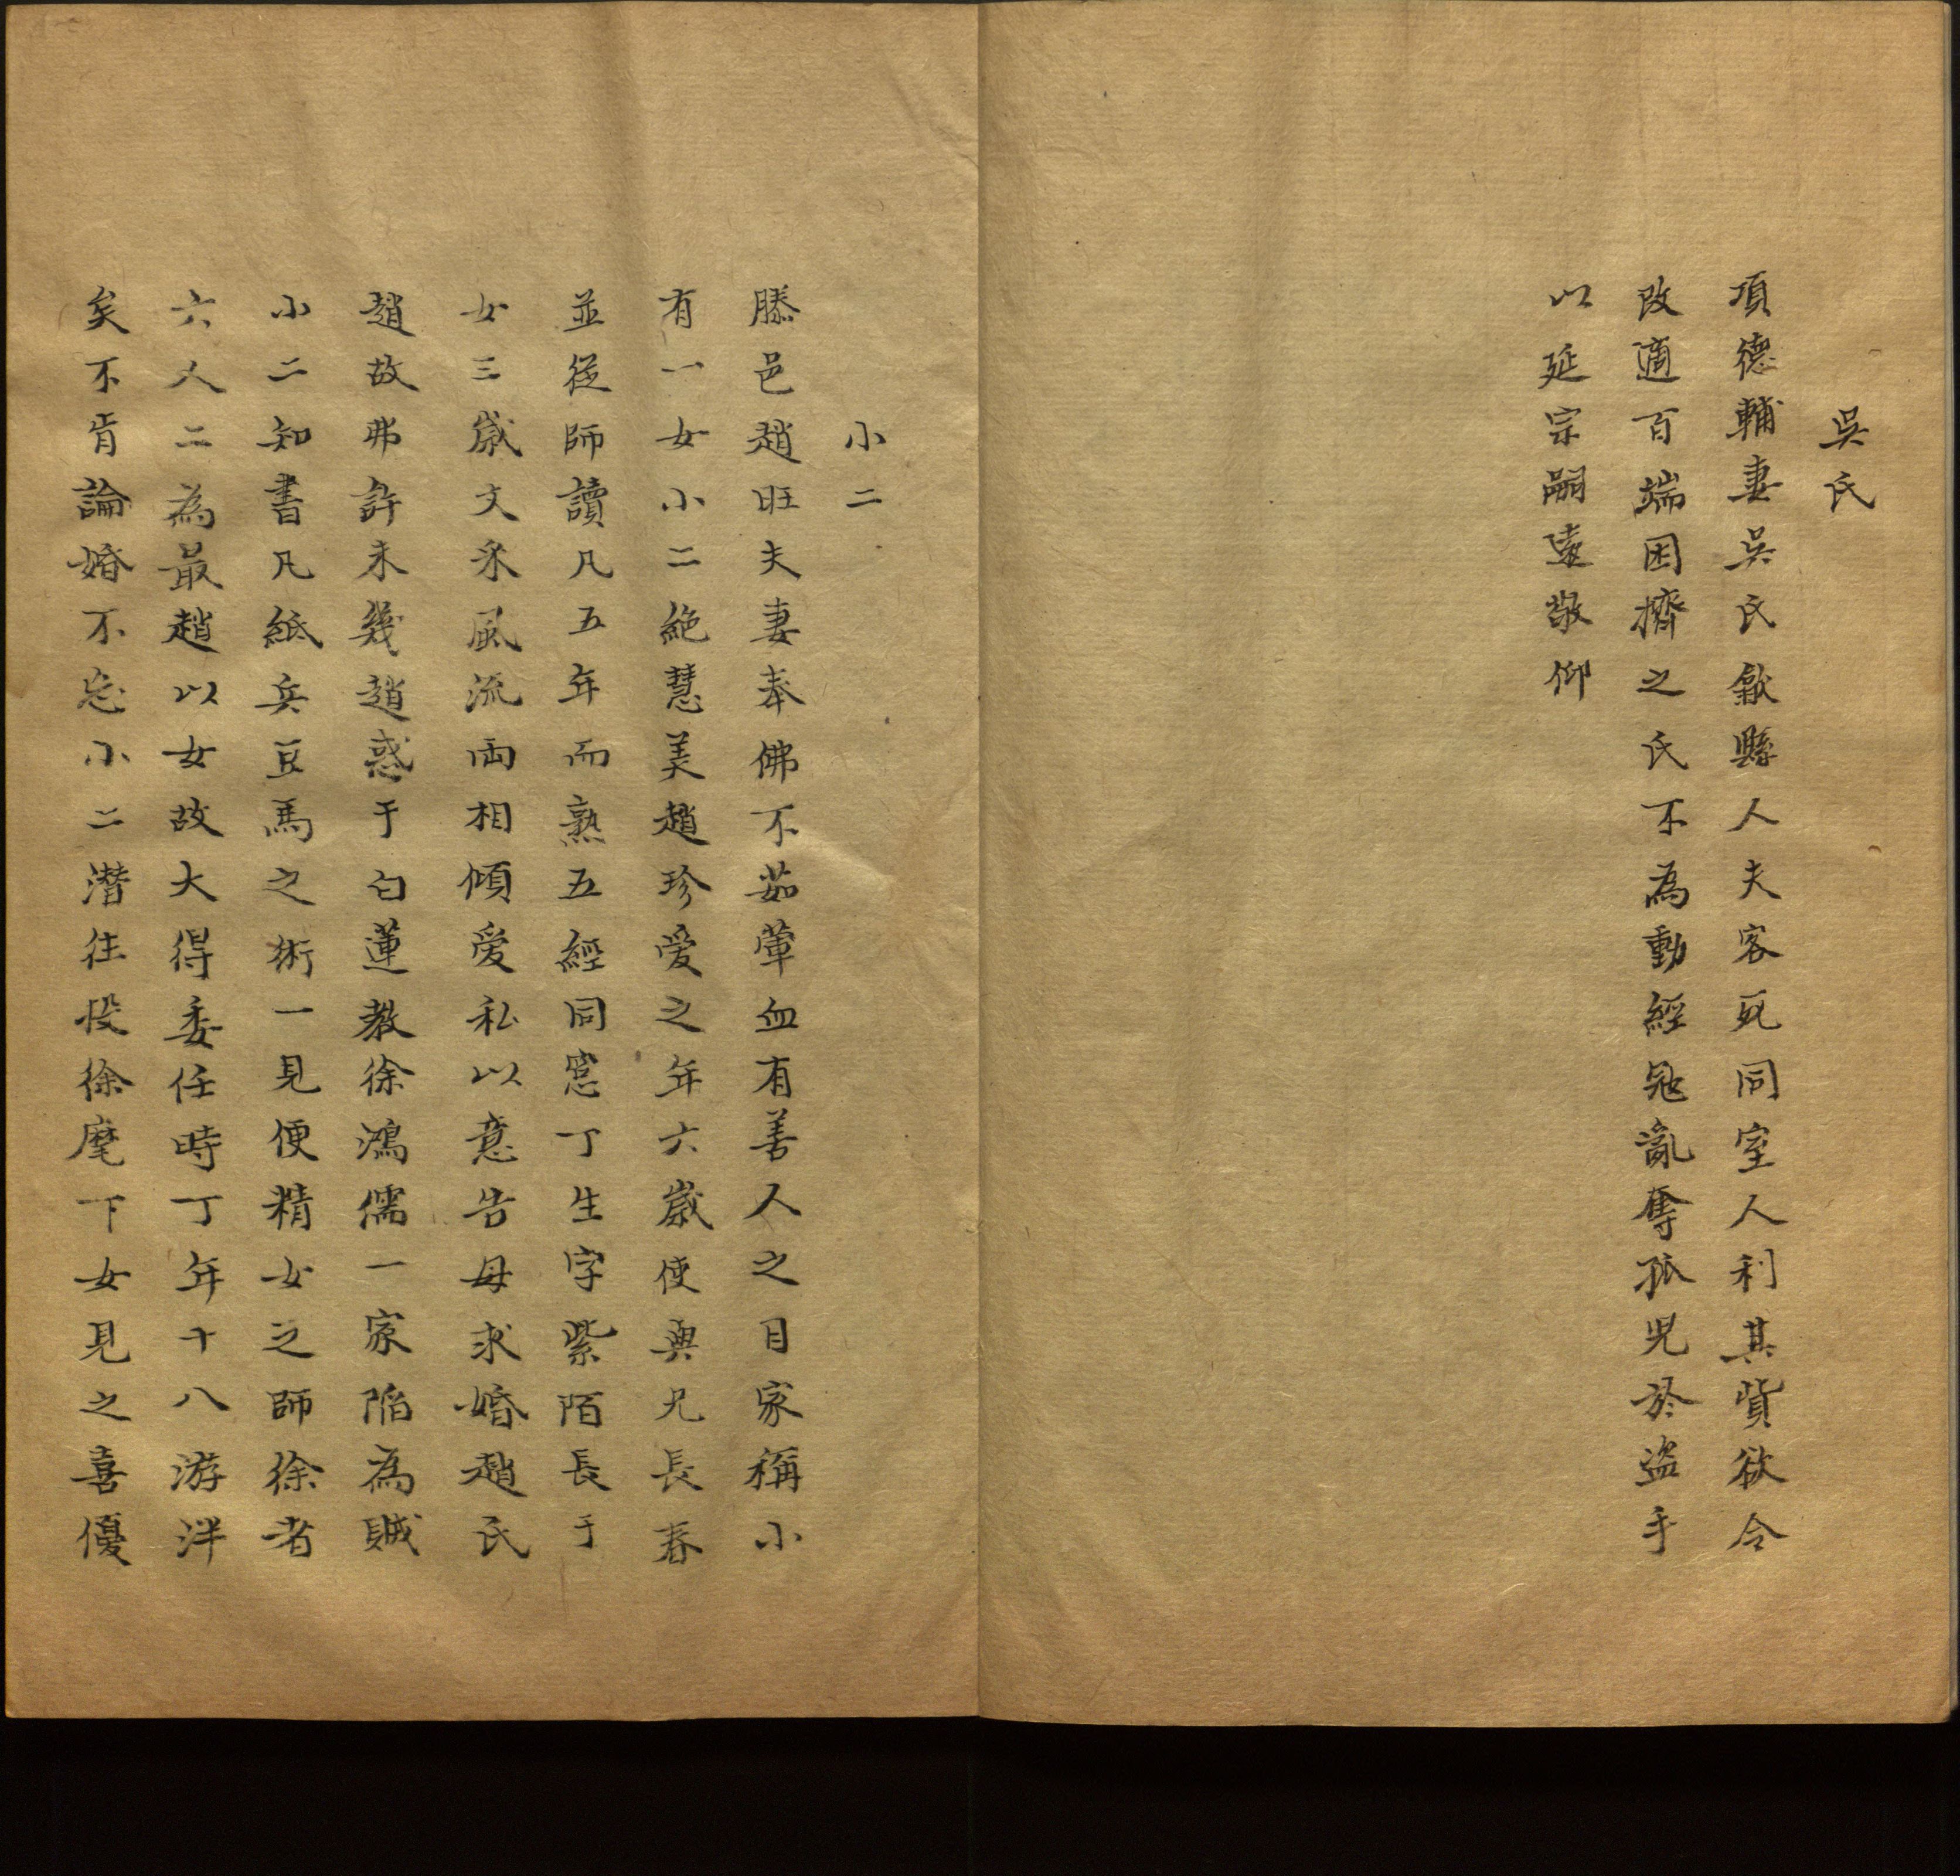 吳氏
項德輔妻吳氏歙縣人夫客死同室人利其貲欲令
改適百端困擠之氏不為動經寇亂奪孤兒於盜手
以延宗嗣遠敬仰
小二
滕邑趙旺夫妻奉佛不茹葷血有善人之目家稱小
有一女小二絶慧美趙珍愛之年六歲使與兄長春
並從師讀凡五年而熟五經同窓丁生字紫陌長于
女三歲文采風流両相傾愛私以意告母求婚趙氏
趙故弗許未幾趙惑于白蓮教徐鴻儒一家陷為賊
小二知書凡紙兵豆馬之術一見便精女之師徐者
六人二為最趙以女故大得委任時丁年十八游泮
矣不肯論婚不忘小二潛往投徐麾下女見之喜優